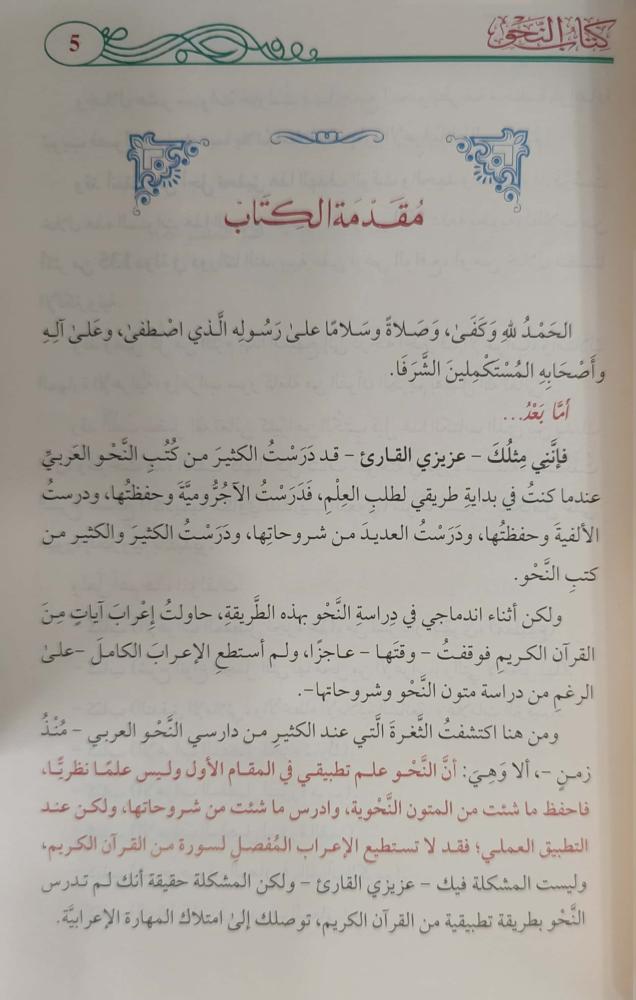 كتاب النَّحْو
5
مُقَدْمَة الكِتَاب
الحَمْدُ للهِ وَكَفَىٰ، وَصَلاةً وسَلامًا علىٰ رَسُولِه الَّذي اصْطفىٰ، وعَلىٰ آلِهِ
وأَصْحَابِهِ المُسْتَكْمِلِينَ الشَّرَفَا.
أمَّا بَعْدُ...
فإنَّنِي مِثلُكَ - عزيزي القارئ - قد دَرَسْتُ الكثيرَ من كُتُبِ النَّحْو العَربيِّ
عندما كنتُ في بدايةِ طريقي لطلبِ العِلْمِ، فَدَرَسْتُ الآجُرُّوميَّةَ وحفظتُها، ودرستُ
الألفيةَ وحفظتُها، ودَرَسْتُ العديدَ من شروحاتِها، ودَرَسْتُ الكثيرَ والكثير من
كتبِ النَّحْو.
ولكن أثناء اندماجي في دِراسةِ النَّحْو بهذه الطَّريقةِ، حاولتُ إِعْرابَ آياتٍ مِنَ
القرآن الكريمِ فوقفتُ - وقتَها - عـاجزًا، ولـم أستطعِ الإعـرابَ الكاملَ -علىٰ
الرغمِ من دراسة متون النَّحْو وشروحاتها-.
ومن هنا اكتشفتُ الثَّغرةَ الَّتي عند الكثيرِ من دارسي النَّحْو العربي - مُنْذُ
زمنٍ -، ألا وَهِيَ: أنَّ النَّحْو علم تطبيقي في المقام الأول وليس علمًا نظريًّا،
فاحفظ ما شئت من المتون النَّحْوية، وادرس ما شئت من شروحاتها، ولكن عند
التطبيق العملي؛ فقد لا تستطيع الإعراب المُفصلِ لسورة من القرآن الكريم،
وليست المشكلة فيك - عزيزي القارئ - ولكن المشكلة حقيقة أنك لم تدرس
النَّحْو بطريقة تطبيقية من القرآن الكريم، توصلك إلىٰ امتلاك المهارة الإعرابيَّة.